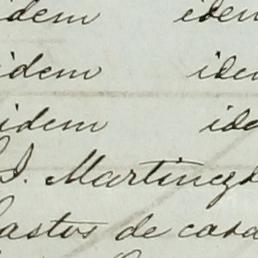 idem iden
idem iden
idem ide
J. Martinez
Gastos de casa